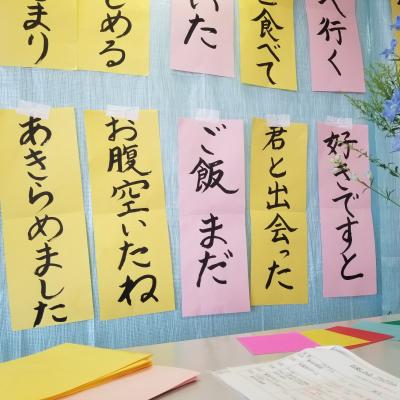 へ行く
ご食べて
いた
しめる
まり
好きですと
君と出会った
ご飯まだ
お腹空いたね
あきらめました